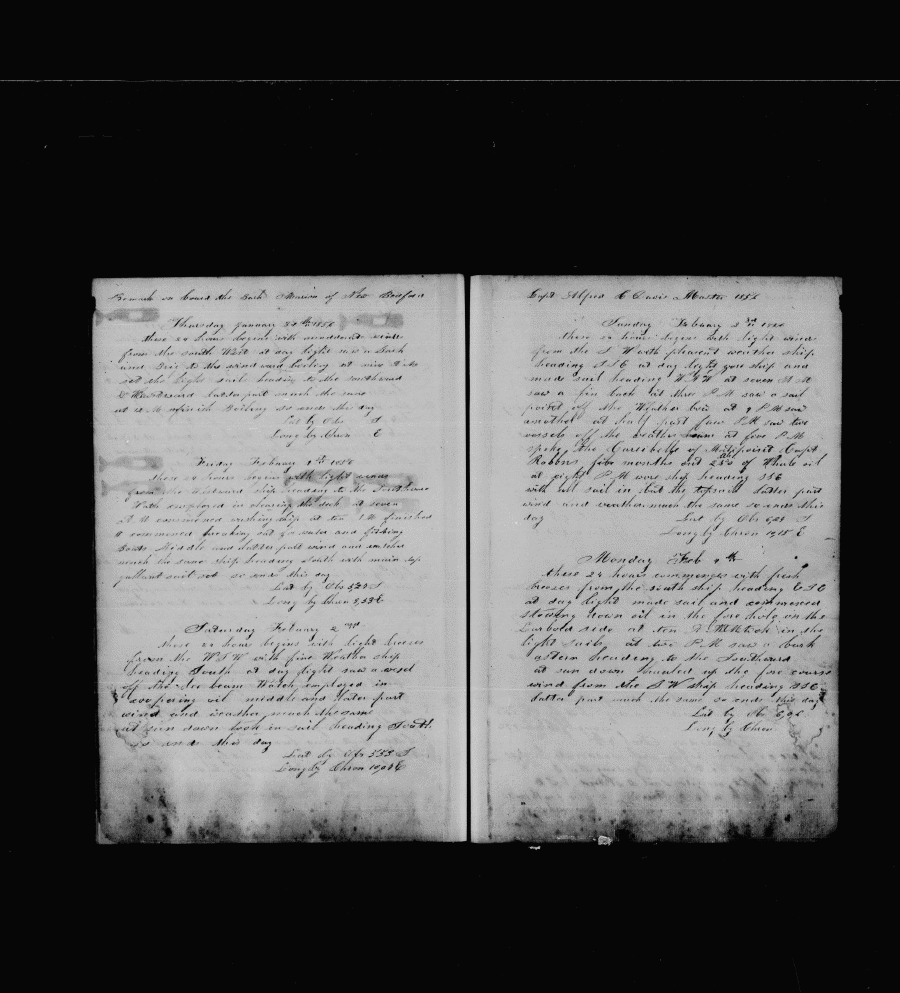 Remark on board the Bark Marion of New Bedford
Thursday January 31th 185
these 24 hours begins with winds
from the South West at day light saw a Bark
and to the windward boiling at nine A M
set the light sail heading to the Southward
& Westward latter part much the same
at finish Boiling so ends this day
Lat by Obs S
Long by Chron E
Friday Febuary 1th 185
these 24 hours begins with light winds
from the Westward ship heading to the Southward
Wath employed in clearing the deck at seven
A M commenced washing ship at ten A M finished
& commenced breaking out for water and
Middle and latter part wind and weather
much the same ship heading South with main top
gallant sail set so ends this day
Lat by Obs S
Long by Chron E
Saturday Febuary 2
these 24 hour begins with light breeses
from the W S W with fine Weather ship
heading South at day light saw a vesel
off the lee beam Watch employed in
coopering oil middle and latter part
wind and weather much the same
at sun down took in sail heading South
so ends this day
Lat by Obs S
Long by Chron E
Capt Alfred C Davis Master 185
Sunday Febuary 3rd 185
these 24 hours begins with light winds
from the S W with pleasent weather ship
heading S S E at day light wore ship and
made sail heading W N W at seven A M
saw a fin back at three P M saw a sail
point off the Weather bow at 4 P M saw
another at half past four P M saw two
vessels off the weather beam at five P M
spoke the of Mattipoisit Capt
months out of Whale oil
at eight P M wore ship heading S S E
with all sail in but the topsails latter part
wind and weather much the same so ends this
day Lat by Obs S
Long by Chron E
Monday Feb 4th
these 24 hours commences with fresh
breases from the South ship heading E S E
at day light made sail and commenced
stowing down oil in the fore hold on the
Larbold side at ten A M took in the
light sails at two P M saw a bark
astern heading to the Southward
at sun down hauled up the fore course
wind from the S W ship heading S S E
latter part much the same so ends this day
Lat by Obs
Long by Chron